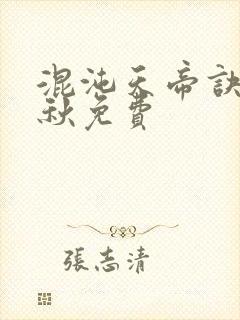 混沌天帝訣
秋免費
張志清